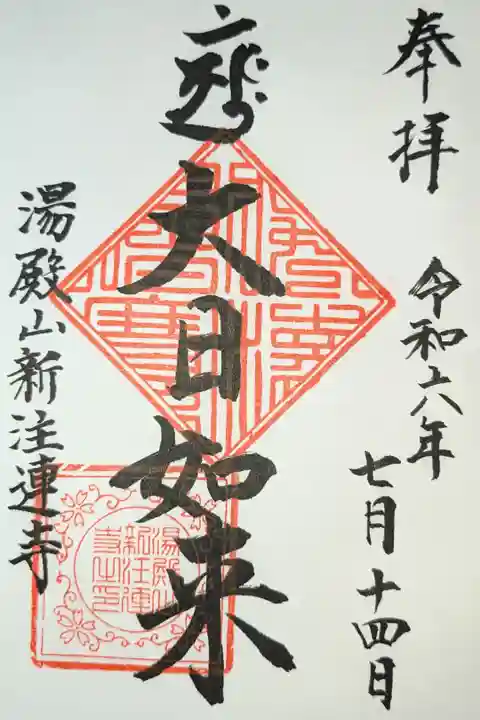 奉拝
令和六年
七月十四日
大日如来
湯殿山新注連寺
湯殿山
新注連
寺之印